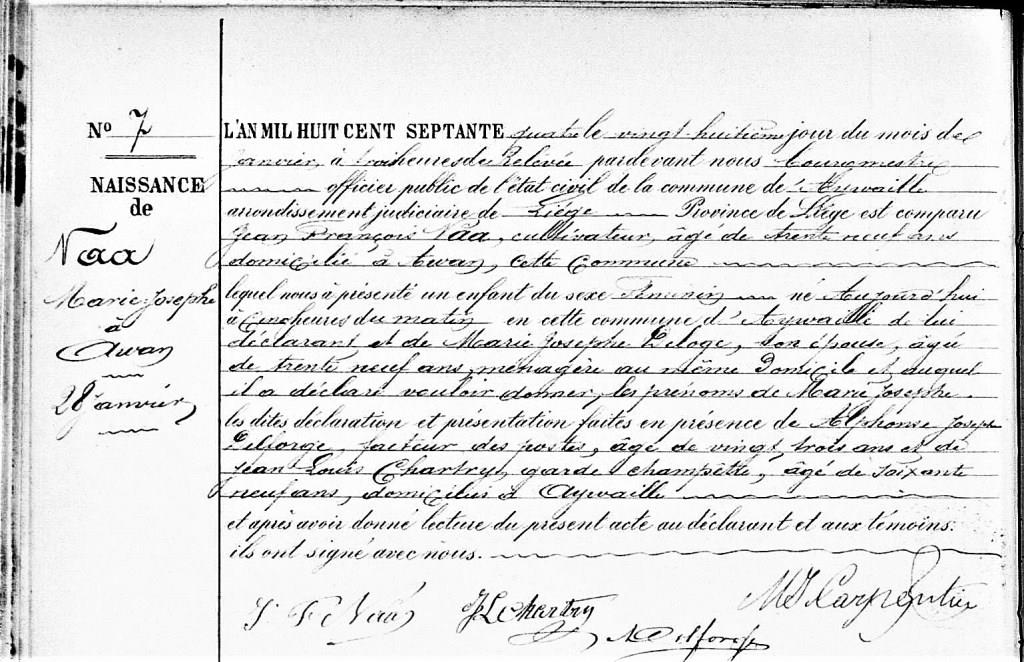 N° 7
NAISSANCE
de
Naa
Marie Josephe
à
Awan
28 janvier
L'AN MIL HUIT CENT SEPTANTE quatre le vingt huitième jour du mois de
janvier, à trois heures de Relevée pardevant nous bourgmestre
officier public de l'état civil de la commune d'Aywaille
arrondissement judiciaire de Liége Province de Liége est comparu
Jean François Naa, cultivateur, âgé de trente neuf ans
domicilié à Awan, cette Commune
lequel nous à présenté un enfant du sexe Féminin né Aujourd'hui
à Cinq heures du matin en cette commune d'Aywaille de lui
déclarant et de Marie Josephe Leloge, son épouse, âgée
de trente neuf ans, ménagère au même Domicile et auquel
il a déclaré vouloir donner, les prénoms de Marie Josephe.
les dites déclaration et présentation faites en présence de Alphonse Joseph
Delforge, facteur des postes, âgé de vingt trois ans et de
Jean Louis Chartry, garde champêtre, âgé de soixante
neuf ans, domiciliés à Aywaille
et après avoir donné lecture du présent acte au déclarant et aux témoins.
ils ont signé avec nous.
J F Naa JL Chartry MJ Carpentier
A Delforge